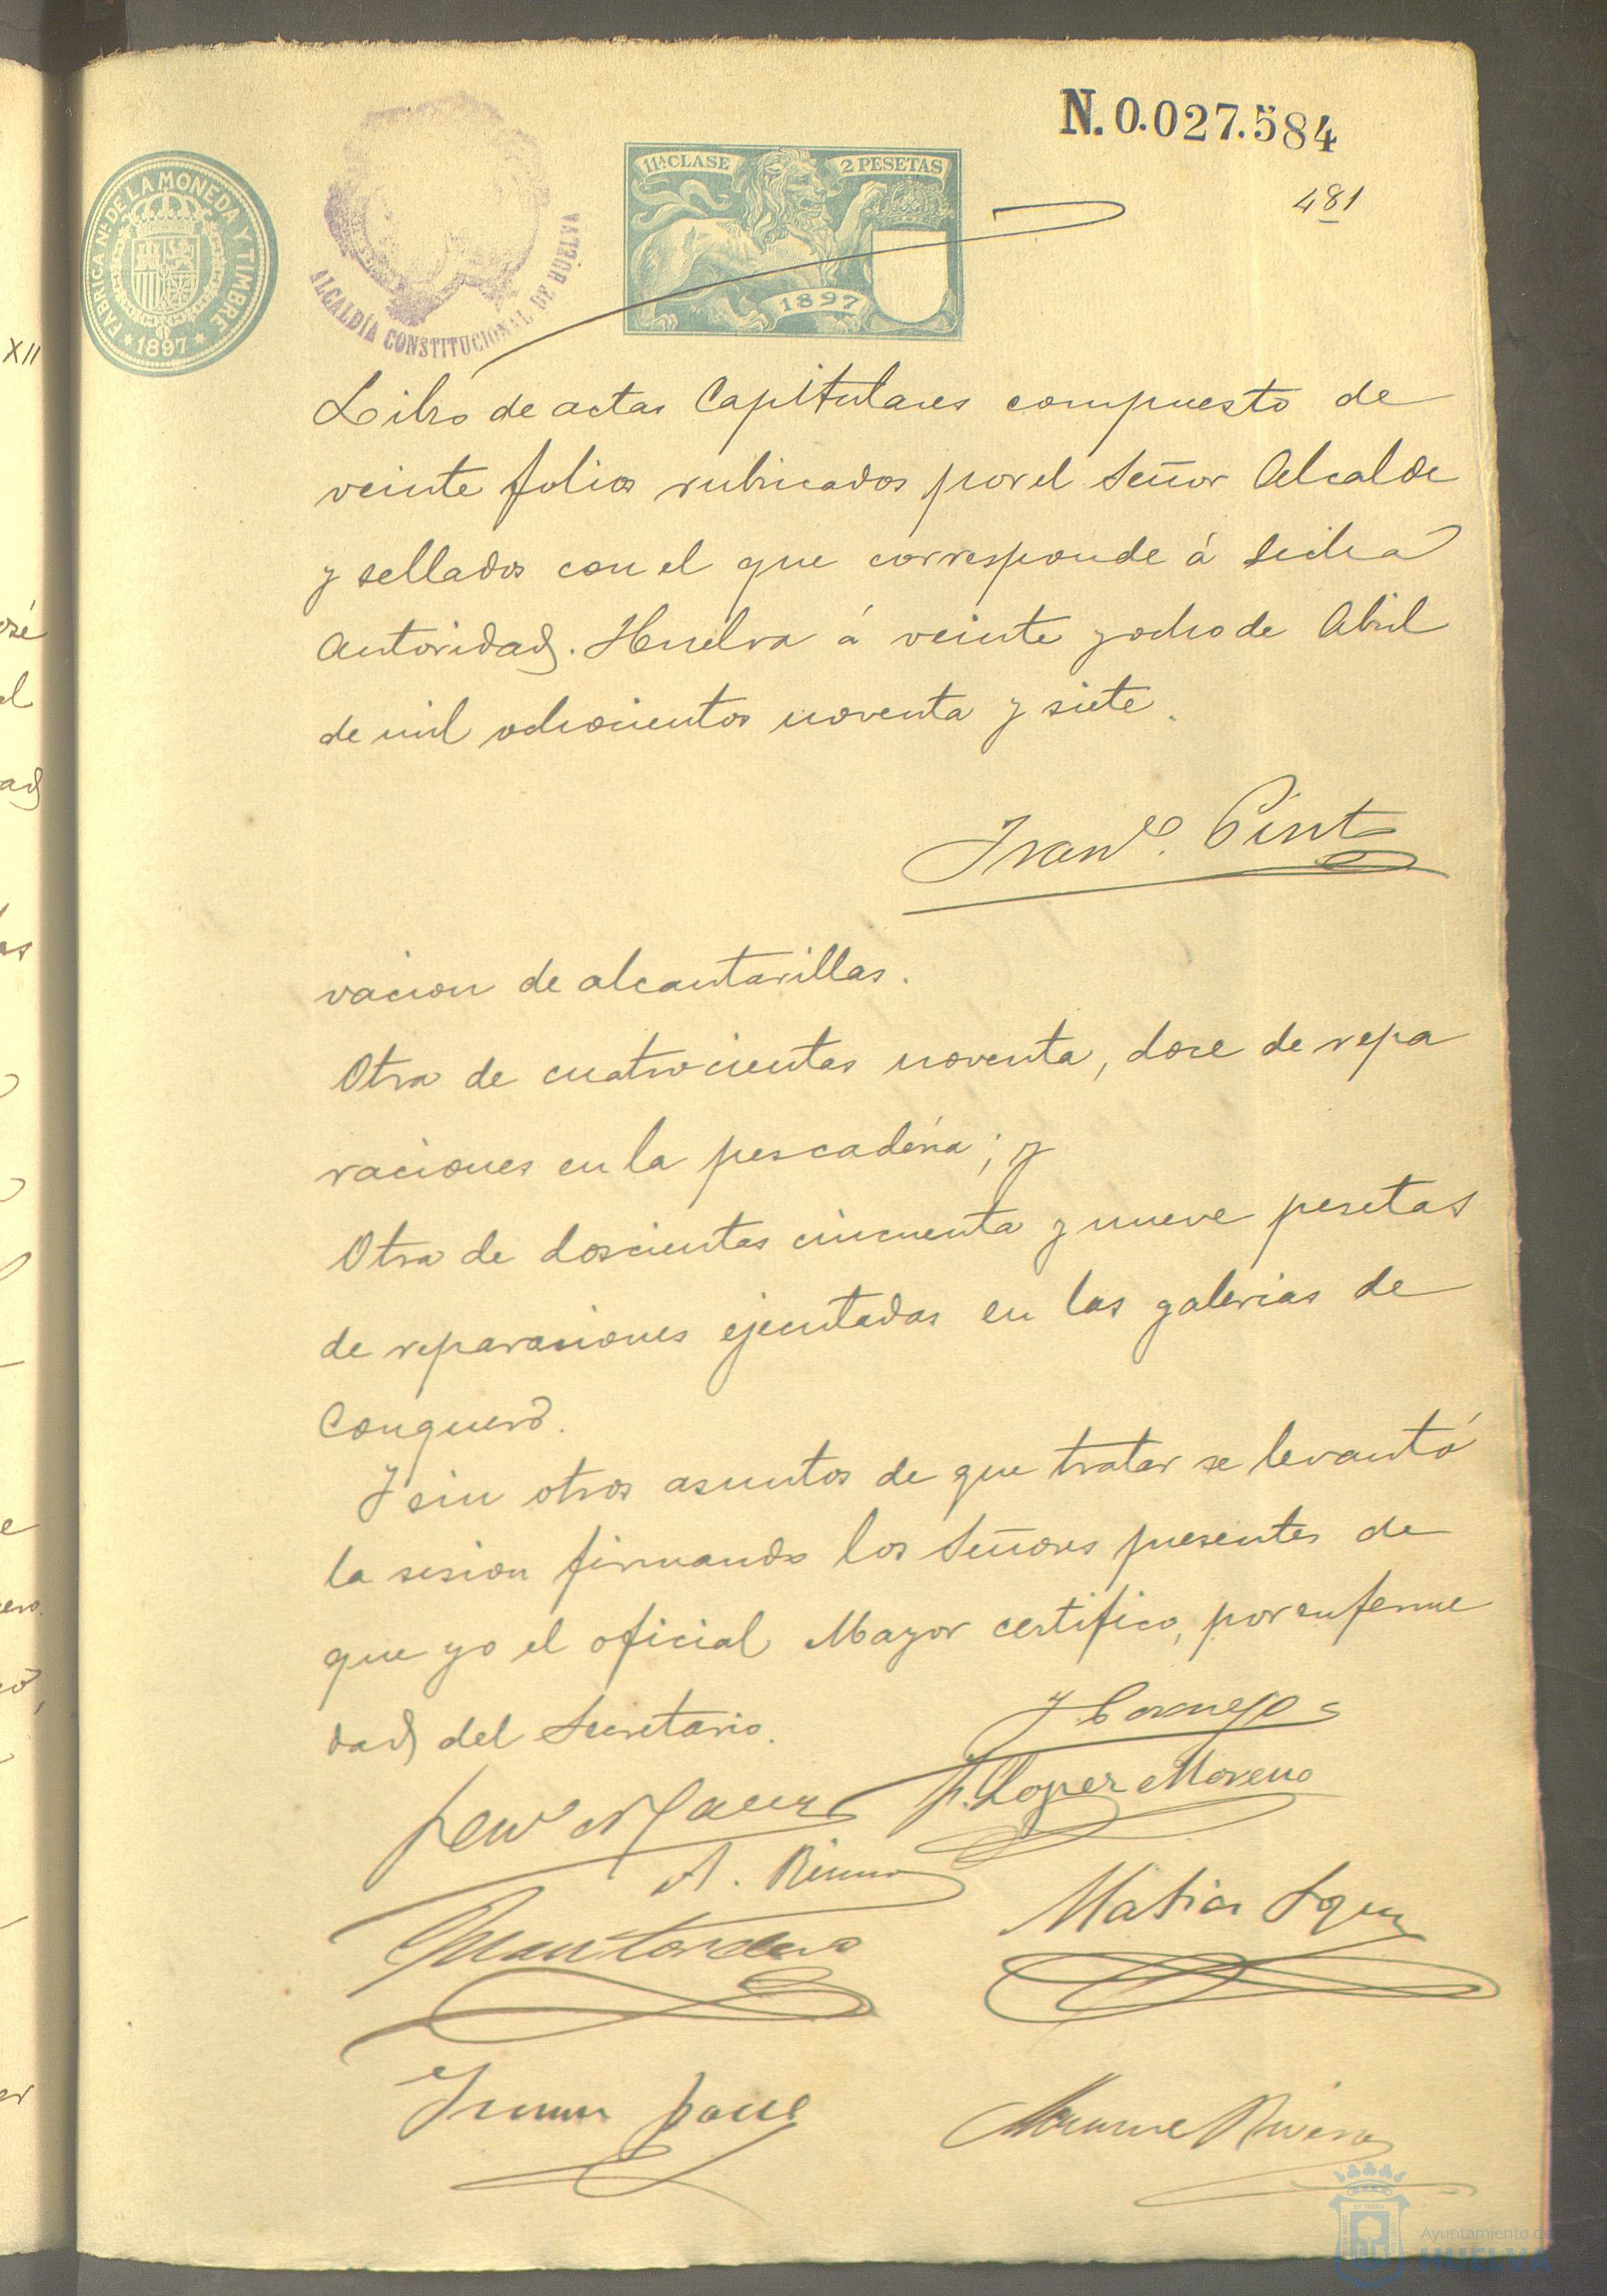 N. 0.027.584
481
FABRICA N.L DE LA MONEDA Y TIMBRE
* 1897 *
ALCALDÍA CONSTITUCIONAL DE HUELVA
11.ª CLASE 2 PESETAS
1897
Libro de actas Capitulares compuesto de
veinte folios rubricados por el Señor Alcalde
y sellados con el que corresponde á dicha
autoridad. Huelva á veinte y ocho de Abril
de mil ochocientos noventa y siete.
Fran.co Pinto
vacion de alcantarillas.
Otra de cuatrocientas noventa, doce de repa
raciones en la pescadería; y
Otra de doscientas cincuenta y nueve pesetas
de reparaciones ejecutadas en las galerias de
Conquero.
Y sin otros asuntos de que tratar se levantó
la sesion firmando los Señores presentes de
que yo el oficial Mayor certifico, por enferme
dad del Secretario.
J Cornejo
F. Lopez Moreno
Matias Lopez
Rivera
XII
Ayuntamiento de
HUELVA